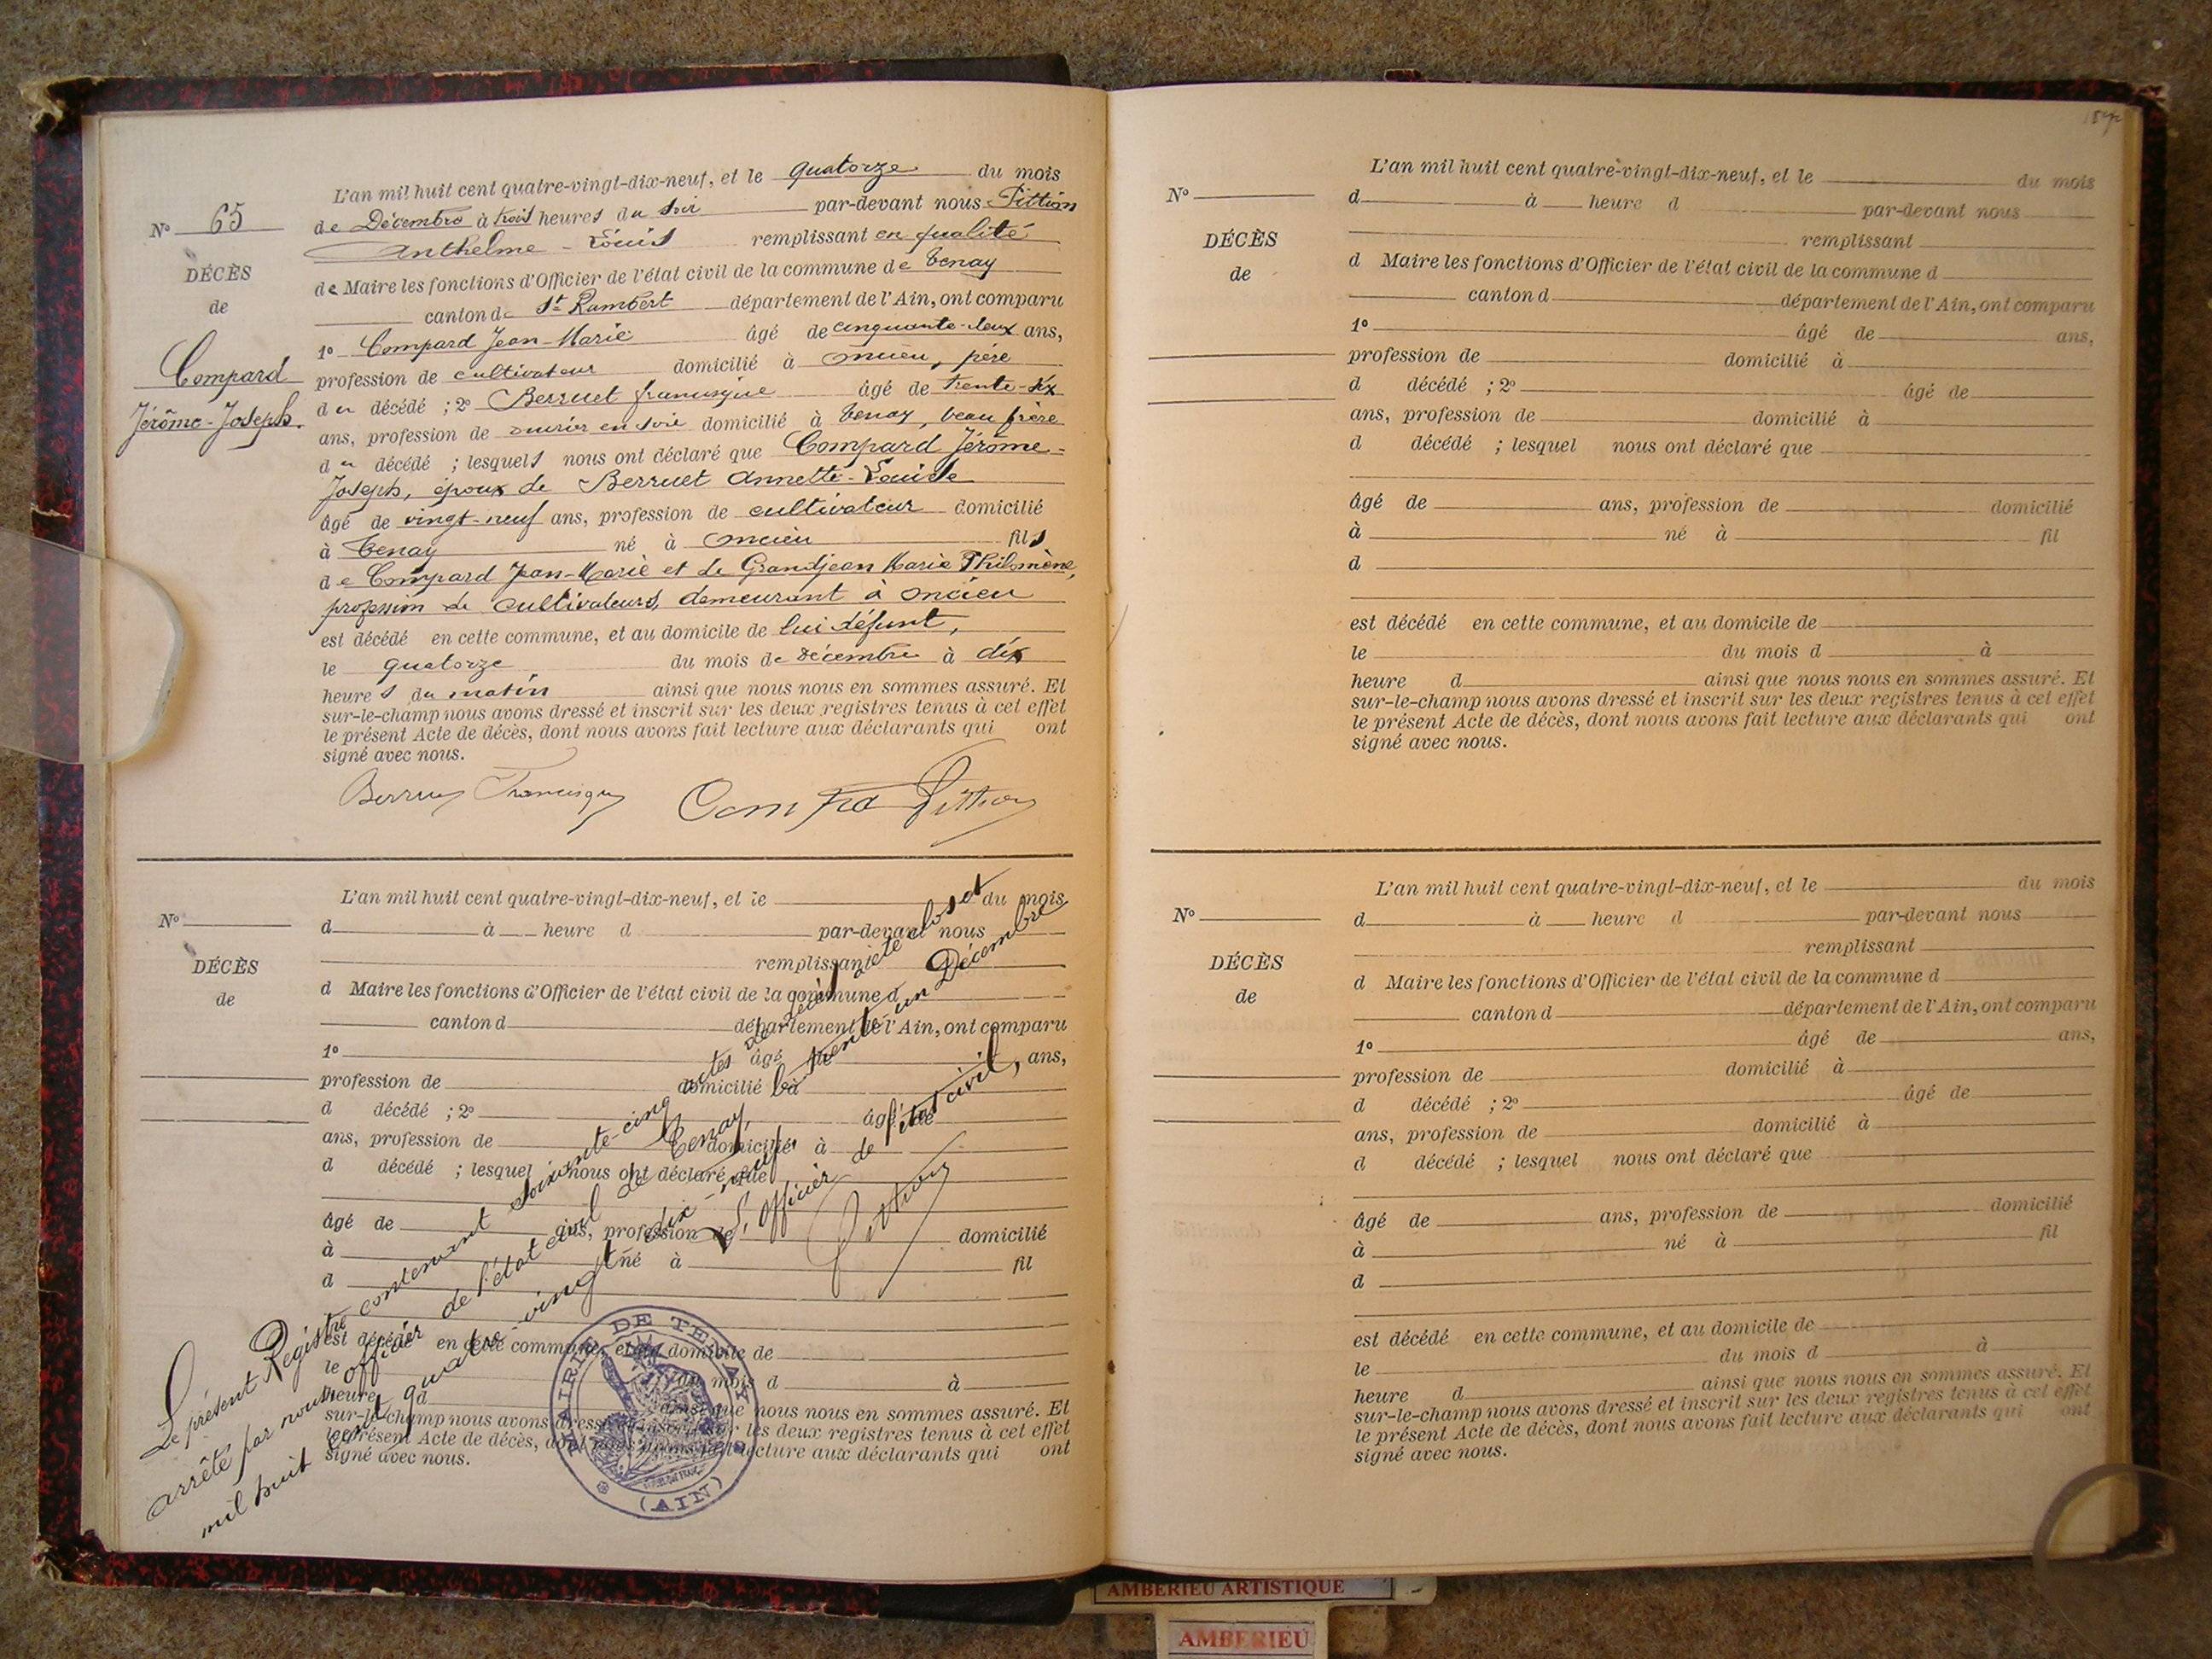 L'an mil huit cent quatre-vingt-dix-neuf, et le quatorze du mois
de Décembre à trois heures du soir par-devant nous Pittion
Anthelme-Louis remplissant en qualité
de Maire les fonctions d'Officier de l'état civil de la commune de Tenay
canton de St Rambert département de l'Ain, ont comparu
1º Compard Jean-Marie âgé de cinquante-deux ans,
profession de cultivateur domicilié à oncieu, père
du décédé ; 2º Berruet francisque âgé de trente-six
ans, profession de ouvrier en soie domicilié à Tenay, beau frère
du décédé ; lesquels nous ont déclaré que Compard Jérôme-
Joseph, époux de Berruet Annette-Louise
âgé de vingt-neuf ans, profession de cultivateur domicilié
à Tenay né à oncieu fils
de Compard Jean-Marie et de Grandjean Marie Philomène,
profession de cultivateurs, demeurant à oncieu
est décédé en cette commune, et au domicile de lui défunt,
le quatorze du mois de décembre à dix
heures du matin ainsi que nous nous en sommes assuré. Et
sur-le-champ nous avons dressé et inscrit sur les deux registres tenus à cet effet
le présent Acte de décès, dont nous avons fait lecture aux déclarants qui ont
signé avec nous.
Nº 65
DÉCÈS
de
Compard
Jérôme-Joseph.
Francisque Pittion
L'an mil huit cent quatre-vingt-dix-neuf, et le du mois
d à heure d par-devant nous
remplissant
d Maire les fonctions d'Officier de l'état civil de la commune d
canton d département de l'Ain, ont comparu
1º âgé de ans,
profession de domicilié à
d décédé ; 2º âgé de
ans, profession de domicilié à
d décédé ; lesquel nous ont déclaré que
âgé de ans, profession de domicilié
à né à fil
d
est décédé en cette commune, et au domicile de
le du mois d à
heure d ainsi que nous nous en sommes assuré. Et
sur-le-champ nous avons dressé et inscrit sur les deux registres tenus à cet effet
le présent Acte de décès, dont nous avons fait lecture aux déclarants qui ont
signé avec nous.
Nº
DÉCÈS
de
Le présent Registre contenant soixante-cinq actes de décès a été clos et
arrêté par nous officier de l'état civil de Tenay, le trente-un Décembre
mil huit cent quatre-vingt dix-neuf.
L'Officier de l'état civil,
Pittion
MAIRIE DE TENAY
(AIN)
L'an mil huit cent quatre-vingt-dix-neuf, et le du mois
d à heure d par-devant nous
remplissant
d Maire les fonctions d'Officier de l'état civil de la commune d
canton d département de l'Ain, ont comparu
1º âgé de ans,
profession de domicilié à
d décédé ; 2º âgé de
ans, profession de domicilié à
d décédé ; lesquel nous ont déclaré que
âgé de ans, profession de domicilié
à né à fil
d
est décédé en cette commune, et au domicile de
le du mois d à
heure d ainsi que nous nous en sommes assuré. Et
sur-le-champ nous avons dressé et inscrit sur les deux registres tenus à cet effet
le présent Acte de décès, dont nous avons fait lecture aux déclarants qui ont
signé avec nous.
Nº
DÉCÈS
de
L'an mil huit cent quatre-vingt-dix-neuf, et le du mois
d à heure d par-devant nous
remplissant
d Maire les fonctions d'Officier de l'état civil de la commune d
canton d département de l'Ain, ont comparu
1º âgé de ans,
profession de domicilié à
d décédé ; 2º âgé de
ans, profession de domicilié à
d décédé ; lesquel nous ont déclaré que
âgé de ans, profession de domicilié
à né à fil
d
est décédé en cette commune, et au domicile de
le du mois d à
heure d ainsi que nous nous en sommes assuré. Et
sur-le-champ nous avons dressé et inscrit sur les deux registres tenus à cet effet
le présent Acte de décès, dont nous avons fait lecture aux déclarants qui ont
signé avec nous.
Nº
DÉCÈS
de
AMBERIEU ARTISTIQUE
AMBERIEU